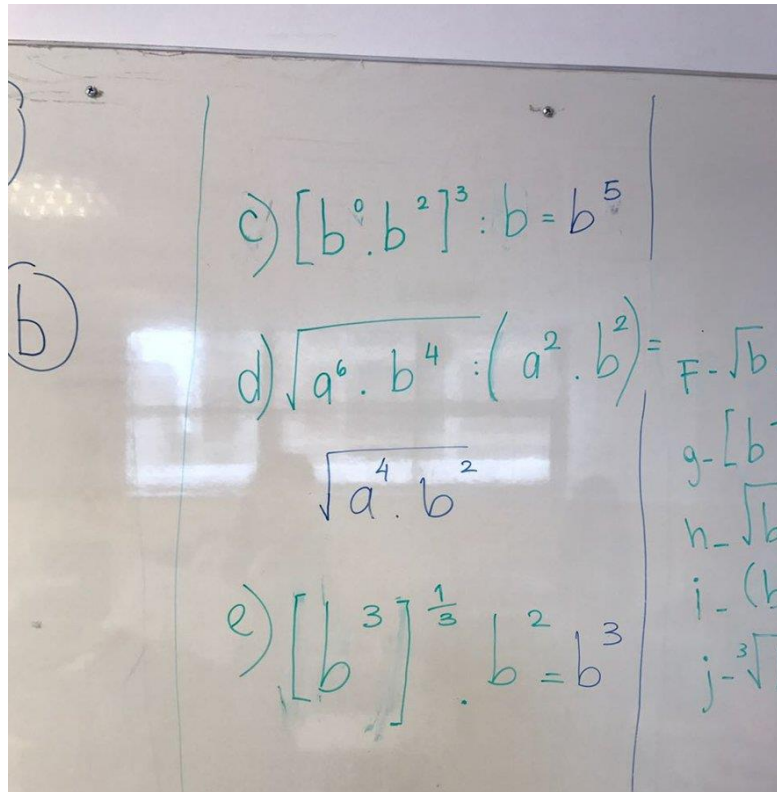 b
c) [b⁰.b²]³ : b = b⁵
d) √a⁶. b⁴ : (a². b²) =
√a⁴. b²
e) [b³]^(1/3) . b² = b³
F - √b
g - [b
h - √b
i - (b
j - ³√